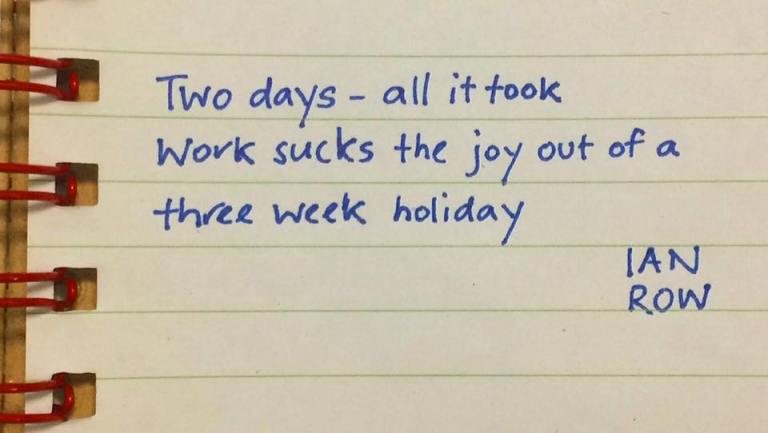 Two days - all it took
Work sucks the joy out of a
three week holiday
IAN
ROW